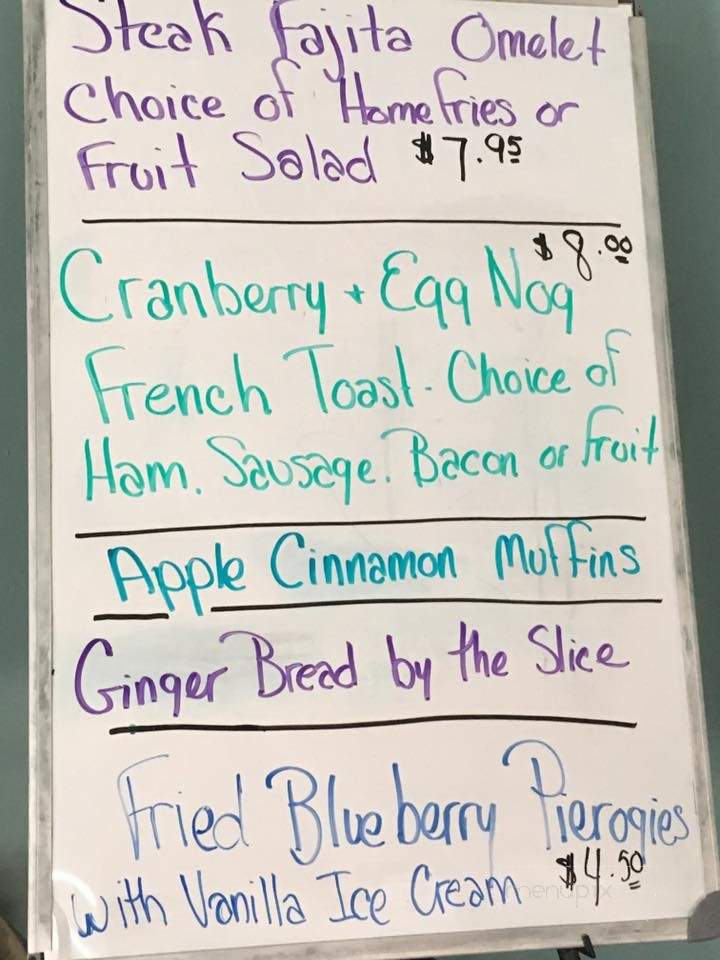 Steak Fajita Omelet
Choice of Home fries or
Fruit Salad $7.95
$8.00
Cranberry + Egg Nog
French Toast. Choice of
Ham. Sausage. Bacon or fruit
Apple Cinnamon Muffins
Ginger Bread by the Slice
Fried Blueberry Pierogies
with Vanilla Ice Cream $4.50
menupix